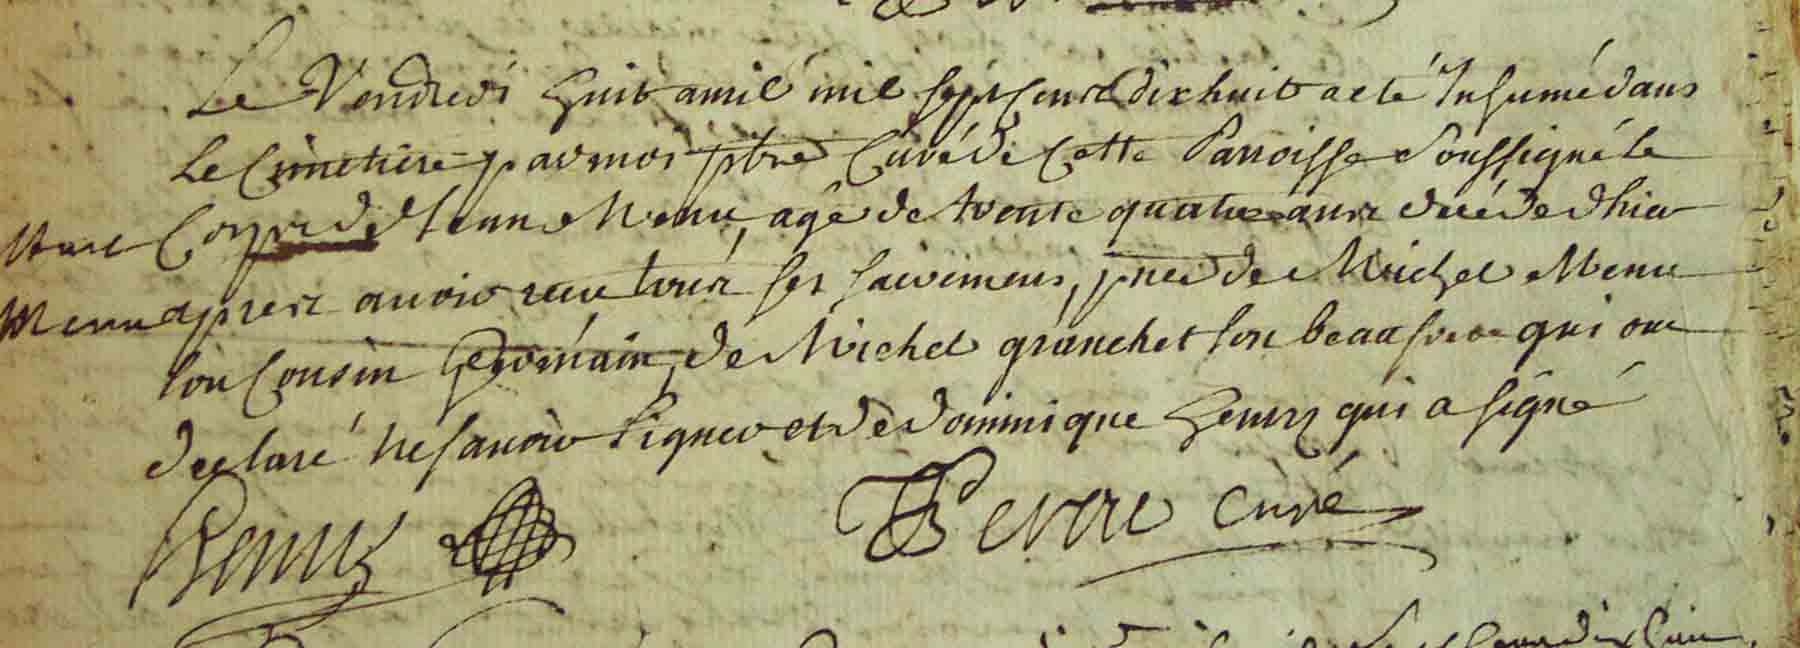 Le Vendredi huit avril mil sept cens dix huit a eté Inhumé dans
Le Cimetiere par moi ptre Curé de Cette Parroisse Soussigné le
Corps de Menu, agé de trente quatre ans decédé d'hier
Menu apres avoir receu tous ses sacremens, pnce de Michel Menu
son Cousin Germain, de Michel granchet son beaufrere qui ont
declaré ne savoir signer et de dominique henry qui a signé
henry curé